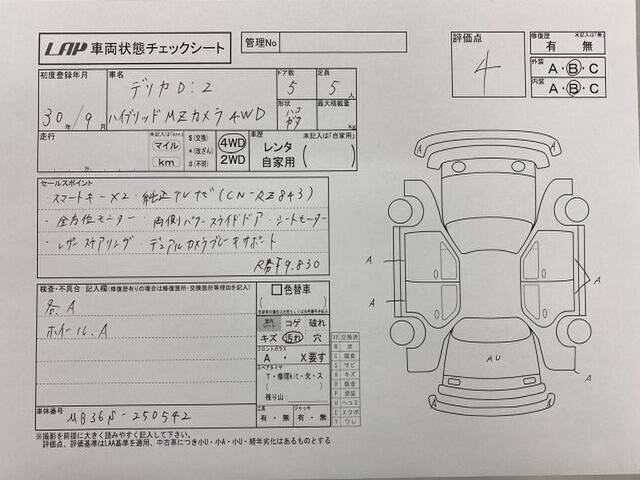 LAP 車両状態チェックシート
管理No
評価点
4
修復歴 未記入は「無」
有 無
外装
A・B・C
内装
A・B・C
初度登録年月
30年/9月
車名
デリカD:2
ハイブリッドMZカメラ4WD
ドア数
5
定員
5人
形状
ハコ
最大積載量
kg
走行
万
未記入は「km」
マイル
km
$(交換)
*(改ざん)
#(不明)
4WD
2WD
車歴 未記入は「自家用」
レンタ
自家用
セールスポイント
・スマートキーX2・純正ナビ(CN-RZ843)
・全方位モニター・両側パワースライドドア・シートヒーター
・レザーステアリング・デュアルカメラブレーキサポート
R券¥9.830
検査・不具合 記入欄(修復歴有りの場合は修復箇所・交換箇所等理由を記入)
各A
ホイールA
色替車
室内
コゲ 破れ
キズ 汚れ 穴
フロントガラス
A・X要す
スペアタイヤ
T・修理キット・欠・ス
残り山
工具
有・無
ジャッキ
有・無
XX 交換済
W 波
C 腐食
S サビ
A キズ
B 板金
P 塗装
U ヘコミ
E エクボ
Y ワレ
車体番号
MB36S-250542
A
A
A
A
A
AU
A
※撮影を前提に大きく読みやすく記入して下さい。
評価点、評価基準はLAA基準を適用、中古車につき小U・小A・小U・経年劣化はあるものとする